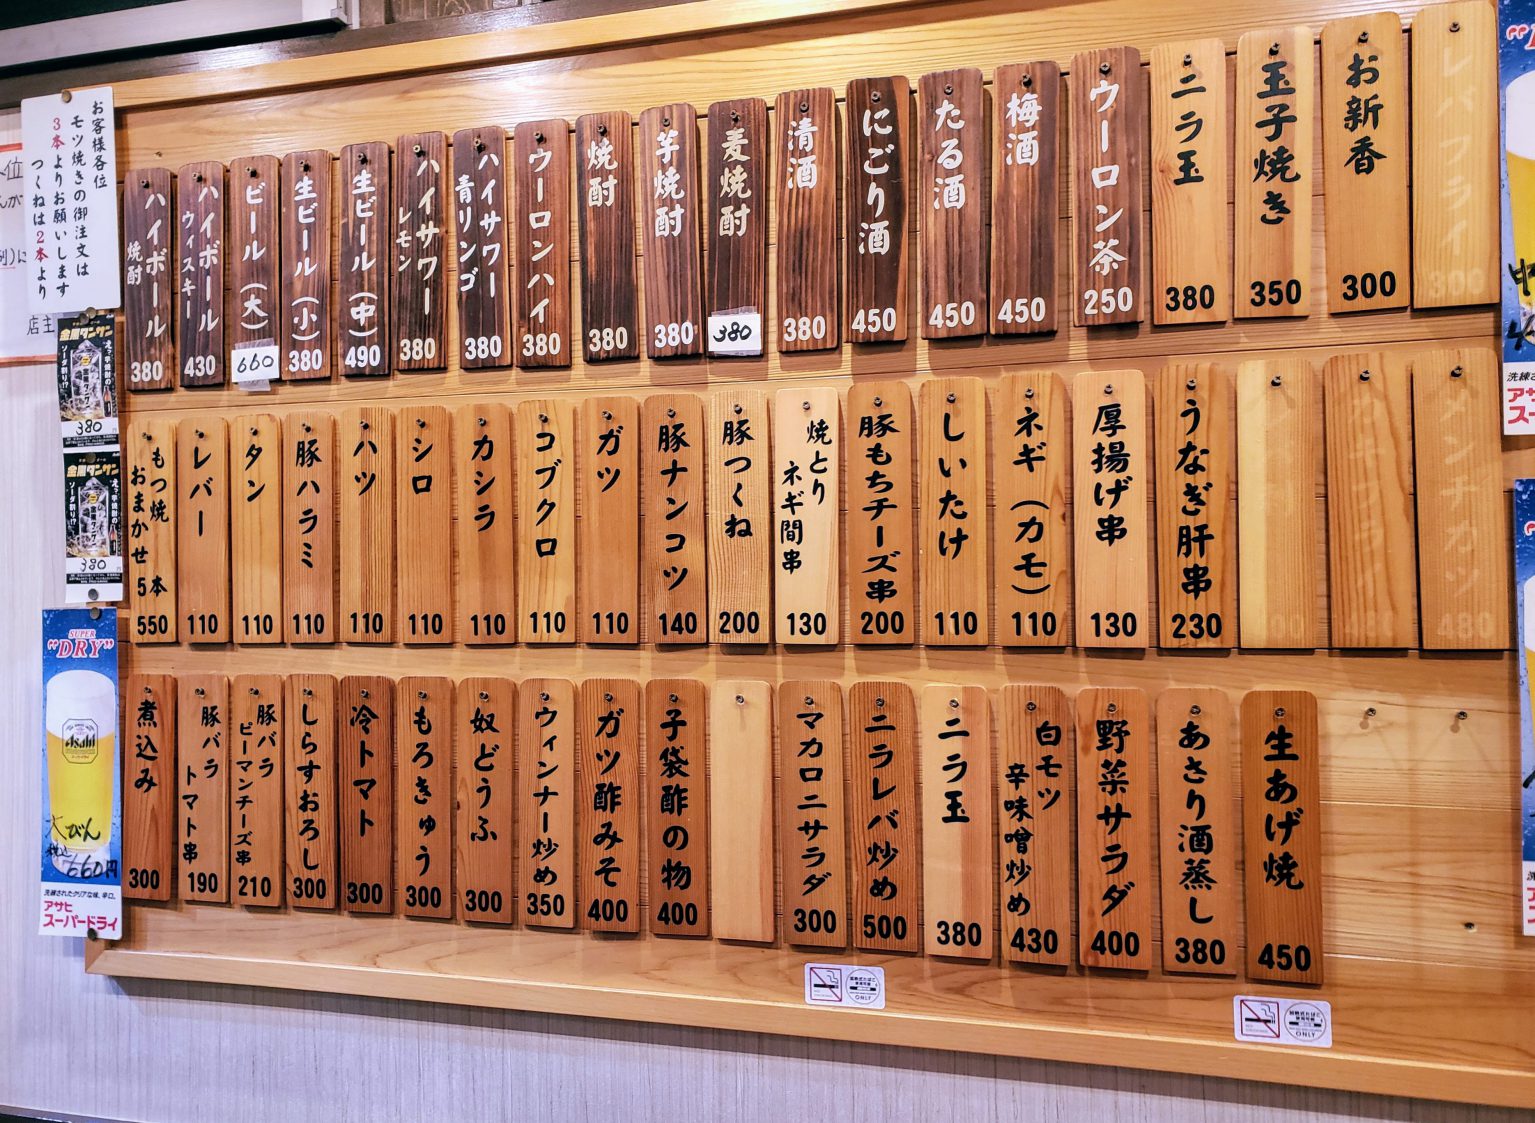 お客様各位
モツ焼きの御注文は
3本よりお願いします
つくねは2本より
店主
ハイボール
焼酎
380
ハイボール
ウィスキー
430
ビール(大)
660
生ビール(小)
380
生ビール(中)
490
ハイサワー
レモン
380
ハイサワー
青リンゴ
380
ウーロンハイ
380
焼酎
380
芋焼酎
380
麦焼酎
380
清酒
380
にごり酒
450
たる酒
450
梅酒
450
ウーロン茶
250
ニラ玉
380
玉子焼き
350
お新香
300
レバフライ
300
もつ焼
おまかせ5本
550
レバー
110
タン
110
豚ハラミ
110
ハツ
110
シロ
110
カシラ
110
コブクロ
110
ガツ
110
豚ナンコツ
140
豚つくね
200
焼とり
ネギ間串
130
豚もちチーズ串
200
しいたけ
110
ネギ(カモ)
110
厚揚げ串
130
うなぎ肝串
230
メンチカツ
480
煮込み
300
豚バラ
トマト串
190
豚バラ
ピーマンチーズ串
210
しらすおろし
300
冷トマト
300
もろきゅう
300
奴どうふ
300
ウィンナー炒め
350
ガツ酢みそ
400
子袋酢の物
400
マカロニサラダ
300
ニラレバ炒め
500
ニラ玉
380
白モツ
辛味噌炒め
430
野菜サラダ
400
あさり酒蒸し
380
生あげ焼
450
金黒タンサン
ソーダ割り!?
380
金黒タンサン
ソーダ割り!?
380
SUPER
"DRY"
Asahi
大びん
税込
660円
洗練されたクリアな味、辛口。
アサヒ
スーパードライ
ONLY
ONLY